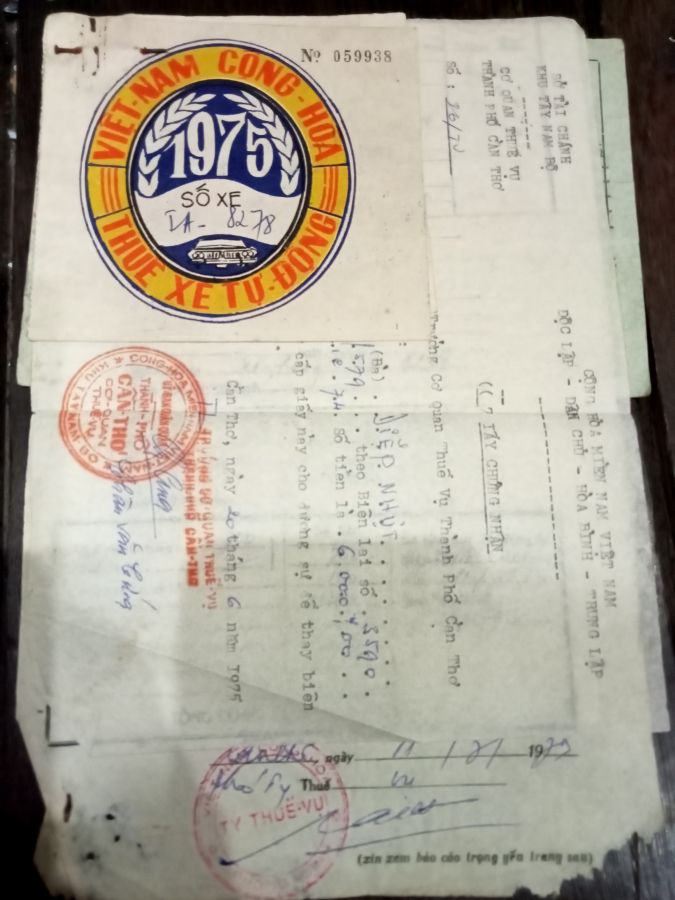 Nº 059938
VIỆT-NAM CỘNG-HÒA
1975
SỐ XE
IA-8278
THUẾ XE TỰ-ĐỘNG
SỞ TÀI CHÁNH
KHU TÂY NAM BỘ
CƠ QUAN THUẾ VỤ
THÀNH PHỐ CẦN THƠ
SỐ : 26/TV
CỘNG HÒA MIỀN NAM VIỆT NAM
ĐỘC LẬP - DÂN CHỦ - HÒA BÌNH - TRUNG LẬP
CHỨNG NHẬN
Trưởng Cơ Quan Thuế Vụ Thành Phố Cần Thơ
(Bà) . DIỆP NHỰT
theo Biên lai số . 3590 .
số tiền là . 6.000
cấp giấy này cho đương sự để thay biên
Cần Thơ, ngày 20 tháng 6 năm 1975
TRƯỞNG CƠ-QUAN THUẾ-VỤ
THÀNH PHỐ CẦN-THƠ
KHU TÂY NAM BỘ
THÀNH-PHỐ
CẦN-THƠ
CƠ-QUAN
THUẾ-VỤ
ngày 11
Ty Thuế vụ
TY THUẾ-VỤ
(xin xem báo cáo trọng yếu trang sau)